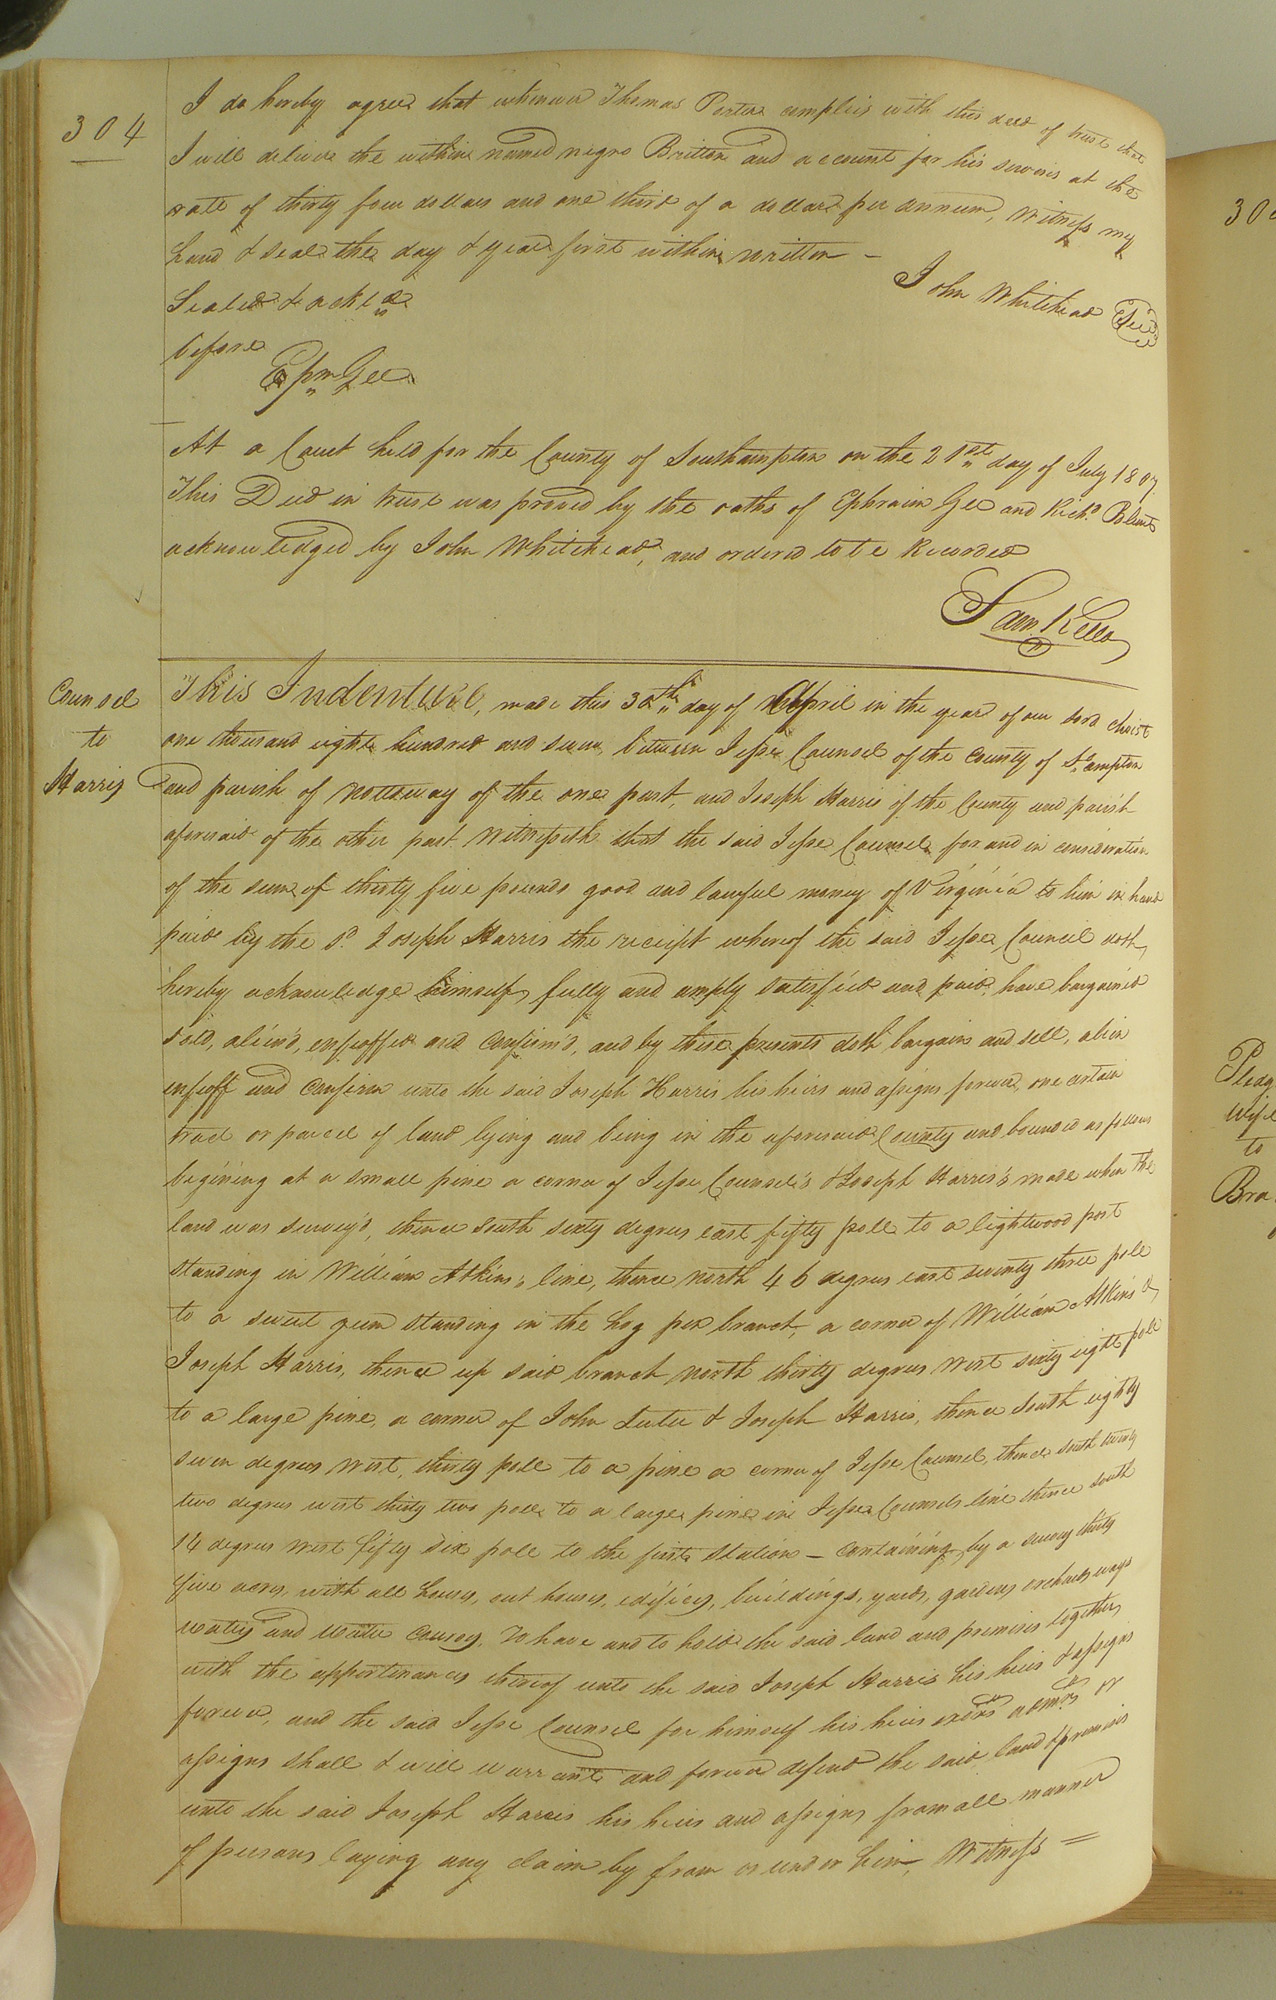 304
I do hereby agree that whenever Thomas Porter complies with this deed of trust that
I will deliver the within named negro Britton and account for his services at the
rate of thirty four dollars and one third of a dollar per annum, Witness my
hand & seal the day & year first within written –
John Whitehead Seal
Sealed & ackd
before
Epm Gee
At a Court held for the County of Southampton on the 20th day of July 1807
This Deed in trust was proved by the oaths of Ephraim Gee and Richd. Blunt
acknowledged by John Whitehead, and ordered to be Recorded
Sam Kello
Counsel
to
Harris
This Indenture, made this 30th day of April in the year of our Lord Christ
one thousand eight hundred and seven, between Jesse Counsel of the County of So.ampton
and parish of Nottoway of the one part, and Joseph Harris of the County and parish
aforesaid of the other part Witnesseth that the said Jesse Counsel for and in consideration
of the sum of thirty five pounds good and lawful money of Virginia to him in hand
paid by the sd. Joseph Harris the receipt whereof the said Jesse Council doth
hereby acknowledge himself fully and amply satisfied and paid, have bargain'd
sold, alien'd, enfeoffed and Confirm'd, and by these presents doth bargain and sell, alien
enfeoff and Confirm unto the said Joseph Harris his heirs and assigns forever, one certain
tract or parcel of land lying and being in the aforesaid County and bounded as follows
begining at a small pine a corner of Jesse Counsel's & Joseph Harris's made when the
land was survey'd, thence South sixty degrees east fifty pole to a lightwood post
standing in William Atkins's line, thence North 46 degrees east seventy three pole
to a sweet gum standing in the hog pen branch, a corner of William Atkins &
Joseph Harris, thence up said branch North thirty degrees West sixty eight pole
to a large pine, a corner of John Luter & Joseph Harris, thence South eighty
seven degrees West, thirty pole to a pine a corner of Jesse Counsel, thence South twenty
two degrees west thirty two pole to a large pine in Jesse Counsels line thence South
14 degrees West fifty six pole to the first Station – Containing by a survey thirty
five acres, with all houses, out houses, edifices, buildings, yards, gardens orchards ways
waters and water courses, To have and to hold the said land and premises together
with the appertinances thereof unto the said Joseph Harris his heirs & assigns
forever, and the said Jesse Counsel for himself his heirs exors admrs or
assigns shall & will warrant and forever defend the said land & premises
unto the said Joseph Harris his heirs and assigns from all manner
of persons laying any claim by from or under him, Witness =
30
Wife
to
Bra